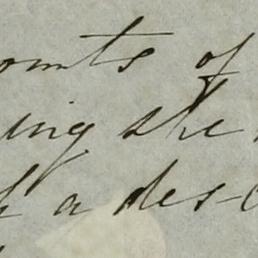 omts of
ing she
a des-